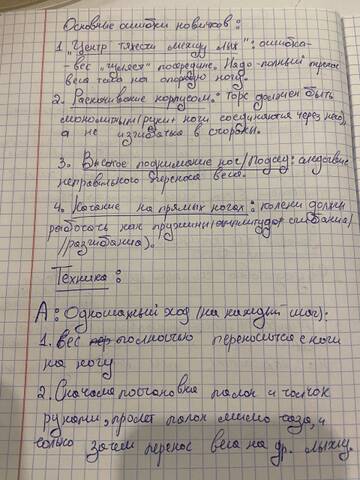 Основные ошибки новичков:
1. "Центр тяжести между лыж": ошибка -
вес "гуляет" посередине. Надо - полный перенос
веса тела на опорную ногу.
2. Раскачивание корпусом. Торс должен быть
монолитным (руки + ноги соединяются через него),
а не изгибаться в стороны.
3. Высокое поднимание ног/Подсед: следствие
неправильного переноса веса.
4. Катание на прямых ногах: колени должны
работать как пружины (амплитуда сгибания/
/разгибания).
Техника:
А: Одношажный ход (на каждый шаг):
1. Вес полностью переносится с ноги
на ногу
2. Сначала постановка палок и толчок
руками, пролёт палок мимо таза, и
только затем перенос веса на др. лыжу.